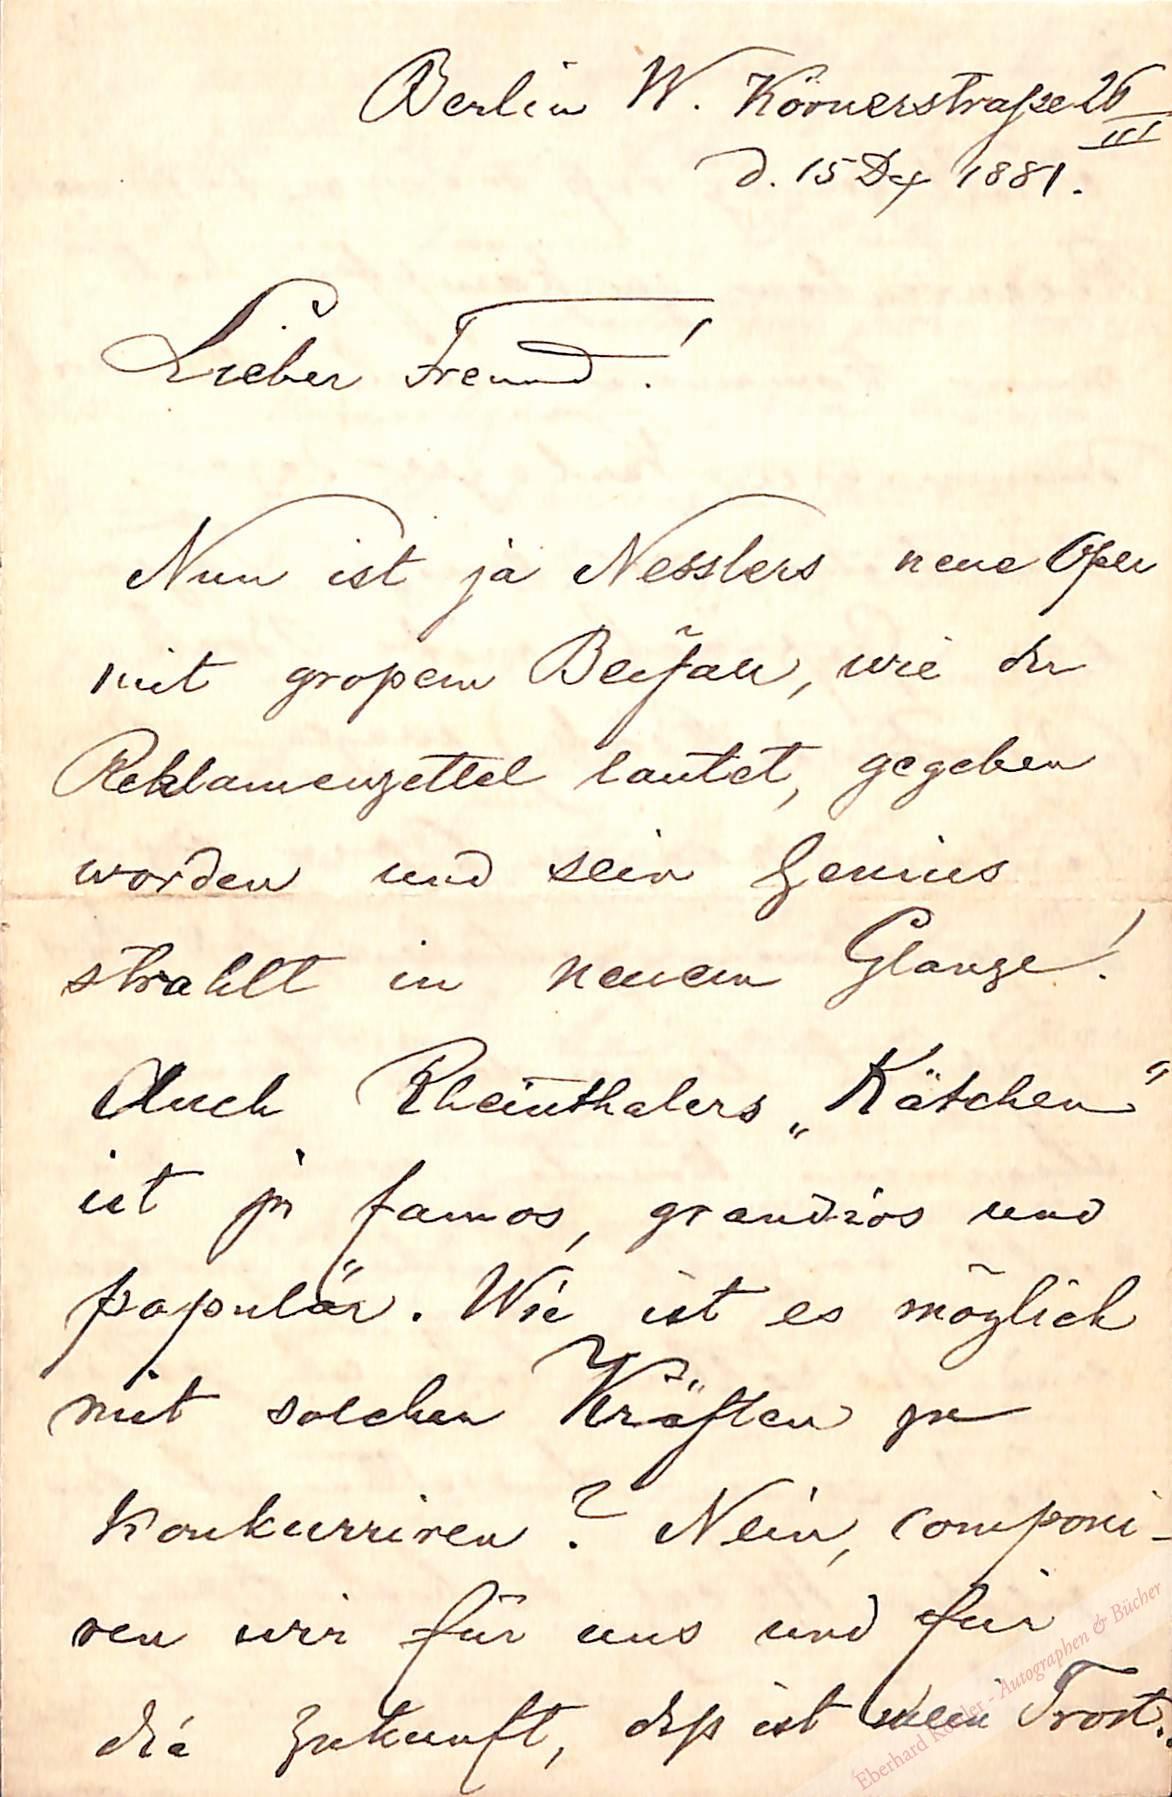 Berlin W. Körnerstraße 26
III
d. 15 Dez 1881.
Lieber Freund!
Nun ist ja Nesslers neue Oper
mit großem Beifall, wie der
Reklamenzettel lautet, gegeben
worden und sein Genius
strahlt in neuem Glanze!
Auch Rheinthalers „Kätchen“
ist ja famos, grandios und
populär. Wie ist es möglich
mit solchen Kräften zu
konkurriren? Nein, componi-
ren wir für uns und für
die Zukunft, dieß ist mein Trost.
Eberhard Köstler - Autographen & Bücher